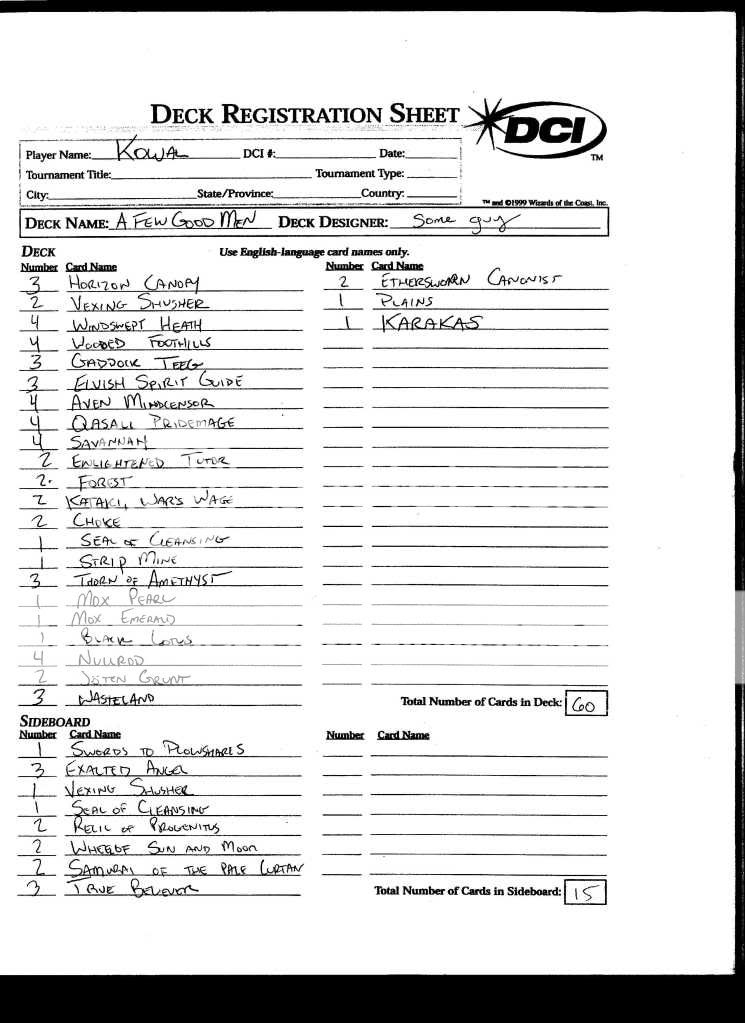 DECK REGISTRATION SHEET
DCI
TM
Player Name: KOWAL DCI #: Date:
Tournament Title: Tournament Type:
City: State/Province: Country:
™ and ©1999 Wizards of the Coast, Inc.
DECK NAME: A FEW GOOD MEN DECK DESIGNER: Some guy
DECK Use English-language card names only.
Number Card Name Number Card Name
3 HORIZON CANOPY 2 ETHERSWORN CANONIST
2 VEXING SHUSHER 1 PLAINS
4 WINDSWEPT HEATH 1 KARAKAS
4 WOODED FOOTHILLS
3 GADDOCK TEEG
3 ELVISH SPIRIT GUIDE
4 AVEN MINDCENSOR
4 QASALI PRIDEMAGE
4 SAVANNAH
2 ENLIGHTENED TUTOR
2. FOREST
2 KATAKI, WAR'S WAGE
2 CHOKE
1 SEAL OF CLEANSING
1 STRIP MINE
3 THORN OF AMETHYST
1 MOX PEARL
1 MOX EMERALD
1 BLACK LOTUS
4 NULLROD
2 JÖTEN GRUNT
3 WASTELAND Total Number of Cards in Deck: 60
SIDEBOARD
Number Card Name Number Card Name
1 SWORDS TO PLOWSHARES
3 EXALTED ANGEL
1 VEXING SHUSHER
1 SEAL OF CLEANSING
2 RELIC OF PROGENITUS
2 WHEEL OF SUN AND MOON
2 SAMURAI OF THE PALE CURTAN
3 TRUE BELIEVER Total Number of Cards in Sideboard: 15